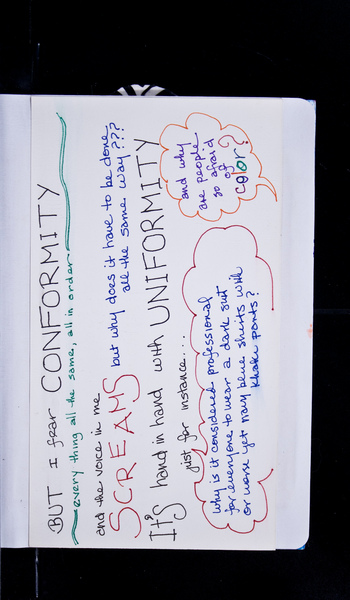 BUT I fear CONFORMITY
every thing all the same, all in order
and the voice in me
SCREAMS but why does it have to be done
all the same way ???
IT'S hand in hand with UNIFORMITY
just for instance...
and why
are people
so afraid
of
color?
Why is it considered professional
for everyone to wear a dark suit
or worse yet navy blue shirts with
khaki pants?